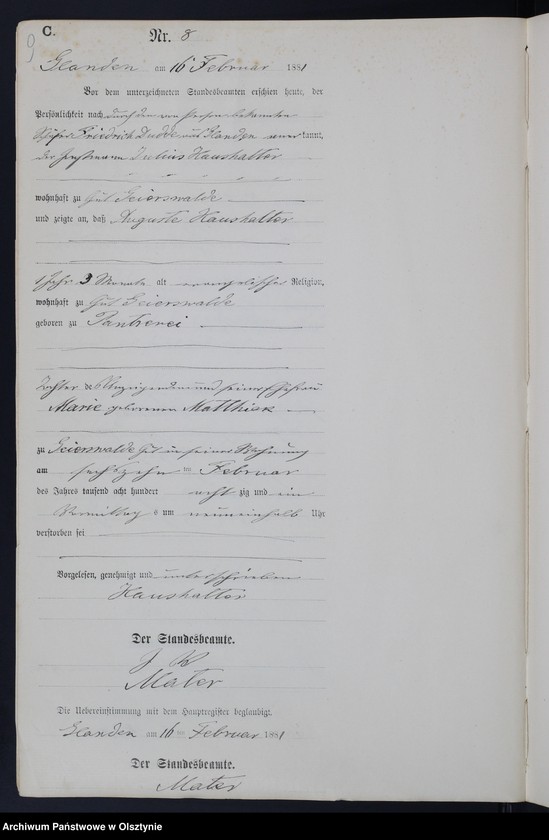 C.
9
Nr. 8
Glanden am 16 Februar 1881
Vor dem unterzeichneten Standesbeamten erschien heute, der
Persönlichkeit nach durch den von Person bekannten
Schäfer Friedrich Dudde aus Glanden anerkannt,
der Instmann Julius Haushalter
wohnhaft zu Gut Geierswalde
und zeigte an, daß Auguste Haushalter
1 Jahr 3 Monate alt evangelischer Religion,
wohnhaft zu Gut Geierswalde
geboren zu
Tochter des Anzeigenden und seiner Ehefrau
Marie geborenen Matthisk
zu Geierswalde Gut in seiner Wohnung
am sechszehn ten Februar
des Jahres tausend acht hundert acht zig und ein
Vormittag s um neuneinhalb Uhr
verstorben sei
Vorgelesen, genehmigt und unterschrieben
Haushalter
Der Standesbeamte.
Mater
Die Uebereinstimmung mit dem Hauptregister beglaubigt.
Glanden am 16 ten Februar 1881
Der Standesbeamte.
Mater
Archiwum Państwowe w Olsztynie